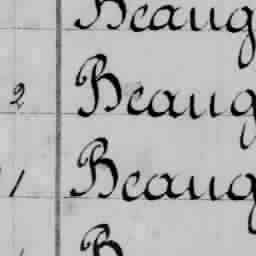 Beaug
2 Beaug
1 Beaug
B